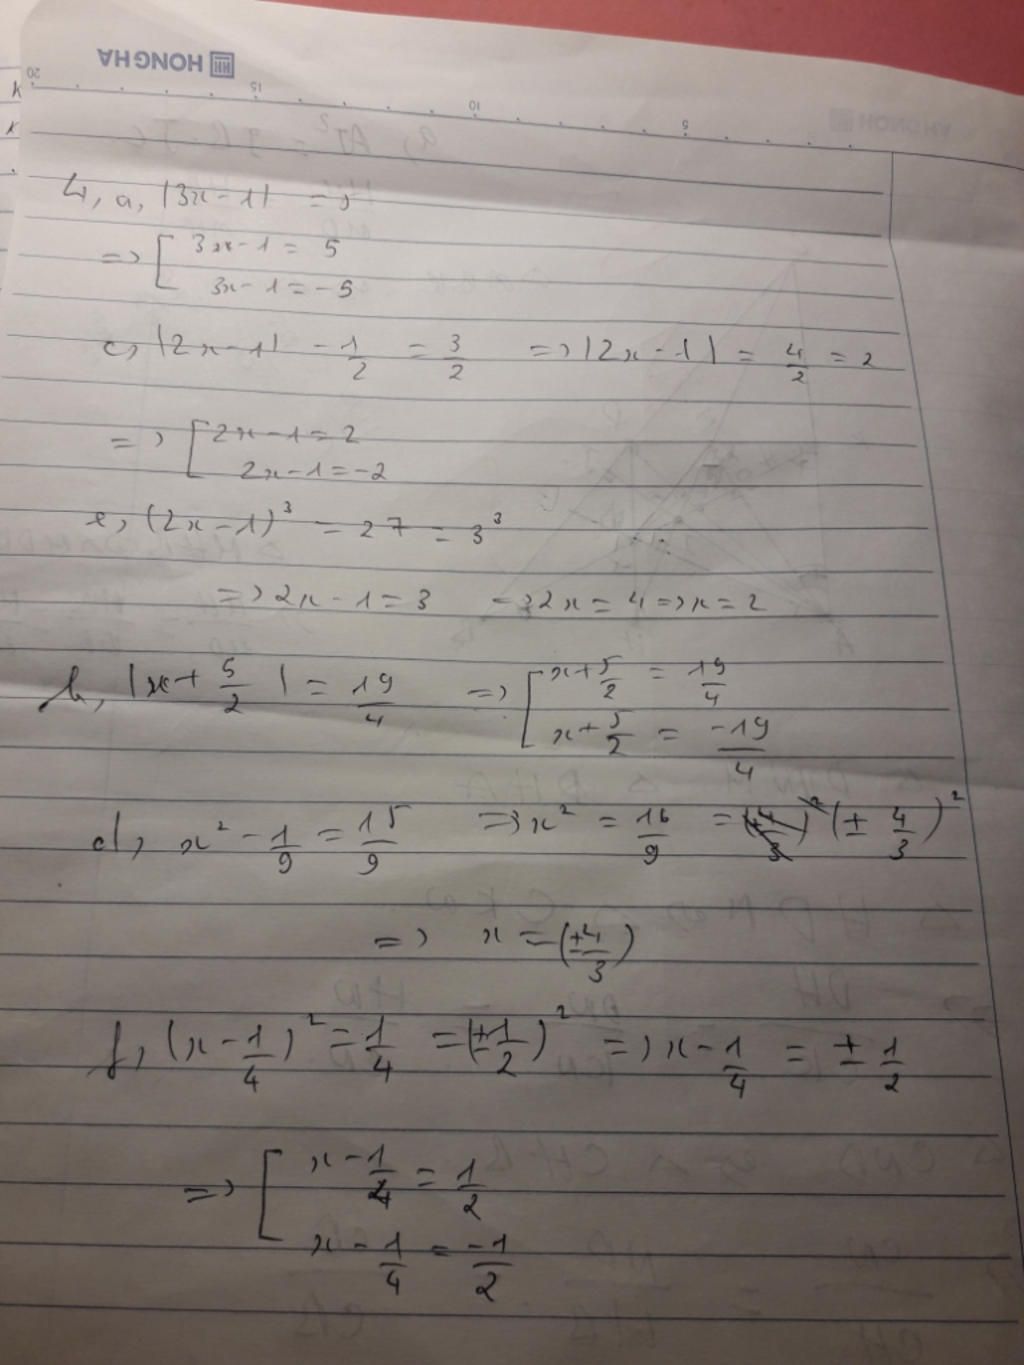 HONG HA
20 15 10 5
4, a, |3x - 1| = 5
=> [ 3x - 1 = 5
3x - 1 = -5
c, |2x - 1| - 1/2 = 3/2 => |2x - 1| = 4/2 = 2
=> [ 2x - 1 = 2
2x - 1 = -2
e, (2x - 1)³ = 27 = 3³
=> 2x - 1 = 3 => 2x = 4 => x = 2
b, |x + 5/2| = 19/4 => [ x + 5/2 = 19/4
x + 5/2 = -19/4
d, x² - 1/9 = 15/9 => x² = 16/9 = (± 4/3)²
=> x = (±4/3)
f, (x - 1/4)² = 1/4 = (±1/2)² => x - 1/4 = ± 1/2
=> [ x - 1/4 = 1/2
x - 1/4 = -1/2